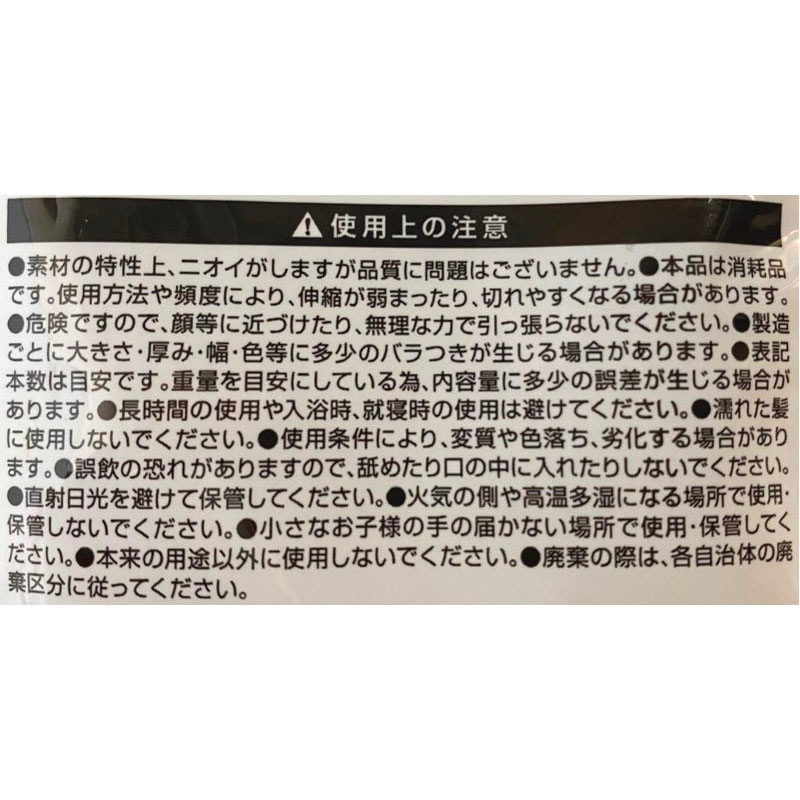 ⚠使用上の注意
●素材の特性上、ニオイがしますが品質に問題はございません。●本品は消耗品
です。使用方法や頻度により、伸縮が弱まったり、切れやすくなる場合があります。
●危険ですので、顔等に近づけたり、無理な力で引っ張らないでください。●製造
ごとに大きさ・厚み・幅・色等に多少のバラつきが生じる場合があります。●表記
本数は目安です。重量を目安にしている為、内容量に多少の誤差が生じる場合が
あります。●長時間の使用や入浴時、就寝時の使用は避けてください。●濡れた髪
に使用しないでください。●使用条件により、変質や色落ち、劣化する場合があり
ます。●誤飲の恐れがありますので、舐めたり口の中に入れたりしないでください。
●直射日光を避けて保管してください。●火気の側や高温多湿になる場所で使用・
保管しないでください。●小さなお子様の手の届かない場所で使用・保管してく
ださい。●本来の用途以外に使用しないでください。●廃棄の際は、各自治体の廃
棄区分に従ってください。